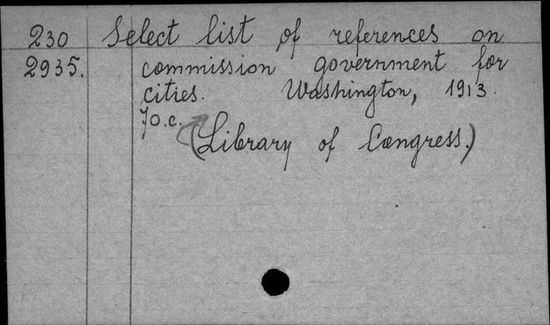 230 Select list of references on
2935. commission government for
cities. Washington, 1913.
70.c.
(Library of Congress.)